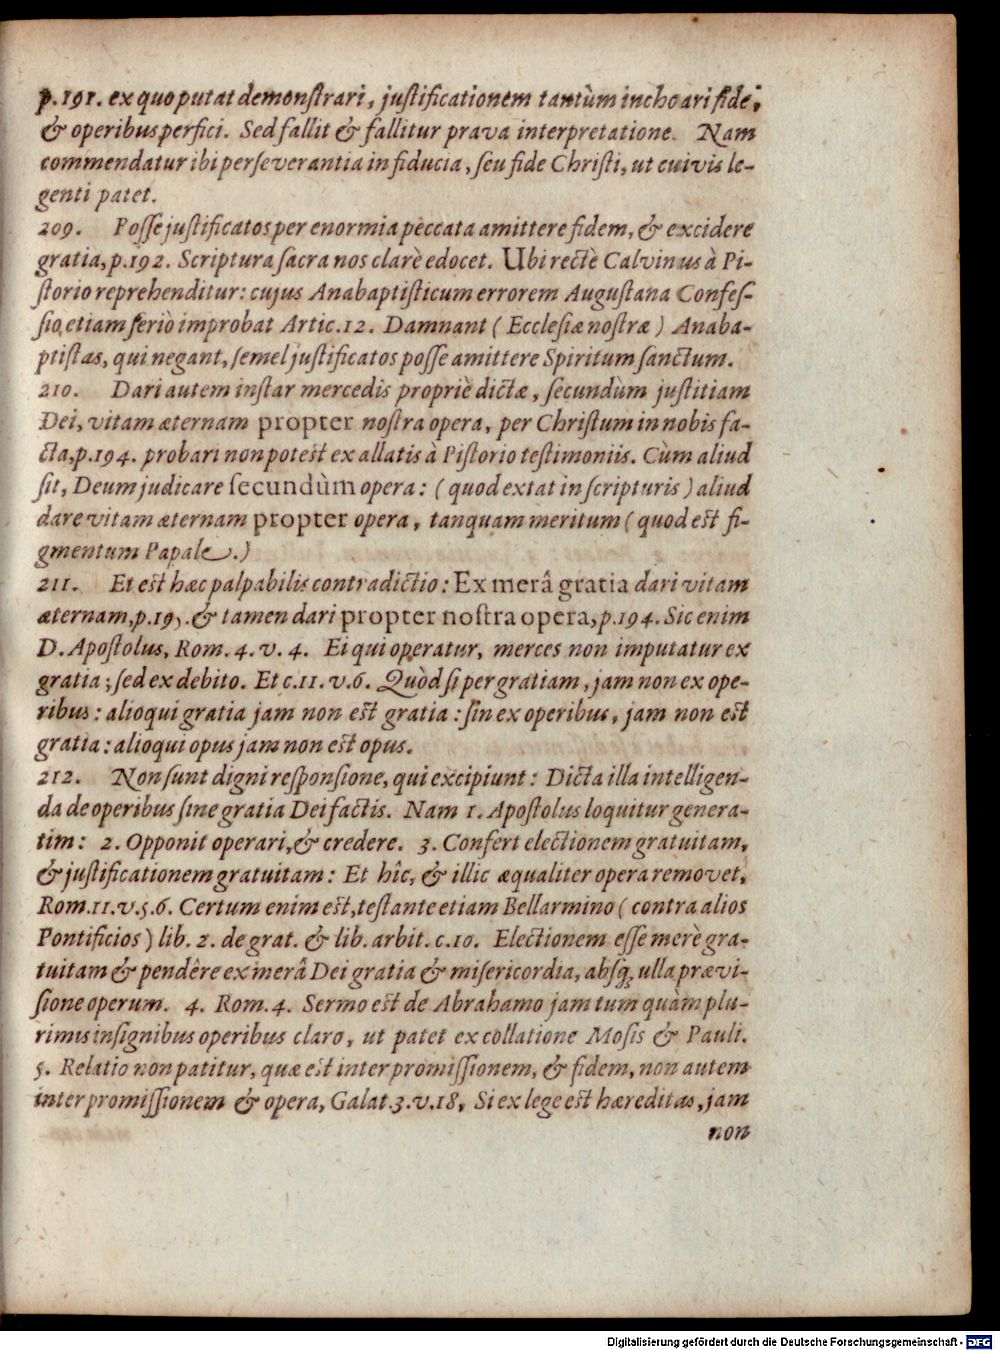 p.191. ex quo putat demonſtrari, juſtificationem tantùm inchoari fide,
& operibus perfici. Sed fallit & fallitur prava interpretatione. Nam
commendatur ibi perſeverantia in fiducia, ſeu fide Chriſti, ut cuivis le-
genti patet.
209. Poſſe juſtificatos per enormia peccata amittere fidem, & excidere
gratia, p.192. Scriptura ſacra nos clarè edocet. Ubi rectè Calvinus à Pi-
ſtorio reprehenditur: cujus Anabaptiſticum errorem Auguſtana Confeſ-
ſio etiam ſeriò improbat Artic.12. Damnant (Eccleſiæ noſtræ) Anaba-
ptiſtas, qui negant, ſemel juſtificatos poſſe amittere Spiritum ſanctum.
210. Dari autem inſtar mercedis propriè dictæ, ſecundùm juſtitiam
Dei, vitam æternam propter noſtra opera, per Chriſtum in nobis fa-
cta, p.194. probari non poteſt ex allatis à Piſtorio teſtimoniis. Cùm aliud
ſit, Deum judicare ſecundùm opera: (quod extat in ſcripturis) aliud
dare vitam æternam propter opera, tanquam meritum (quod eſt fi-
gmentum Papale.)
211. Et eſt hæc palpabilis contradictio: Ex merâ gratia dari vitam
æternam, & tamen dari propter noſtra opera, p.194. Sic enim
D. Apoſtolus, Rom. 4. v. 4. Ei qui operatur, merces non imputatur ex
gratia; ſed ex debito. Et c.11. v.6. Quòd ſi per gratiam, jam non ex ope-
ribus: alioqui gratia jam non eſt gratia: ſin ex operibus, jam non eſt
gratia: alioqui opus jam non eſt opus.
212. Non ſunt digni reſponſione, qui excipiunt: Dicta illa intelligen-
da de operibus ſine gratia Dei factis. Nam 1. Apoſtolus loquitur genera-
tim: 2. Opponit operari, & credere. 3. Confert electionem gratuitam,
& juſtificationem gratuitam: Et hîc, & illic æqualiter opera removet,
Rom.11.v.5.6. Certum enim eſt, teſtante etiam Bellarmino (contra alios
Pontificios) lib. 2. de grat. & lib. arbit. c.10. Electionem eſſe merè gra-
tuitam & pendêre ex merâ Dei gratia & miſericordia, abſq; ulla prævi-
ſione operum. 4. Rom. 4. Sermo eſt de Abrahamo jam tum quàm plu-
rimis inſignibus operibus claro, ut patet ex collatione Moſis & Pauli.
5. Relatio non patitur, quæ eſt inter promiſſionem, & fidem, non autem
inter promiſſionem & opera, Galat.3.v.18. Si ex lege eſt hæreditas, jam
non
Digitalisierung gefördert durch die Deutsche Forschungsgemeinschaft - DFG